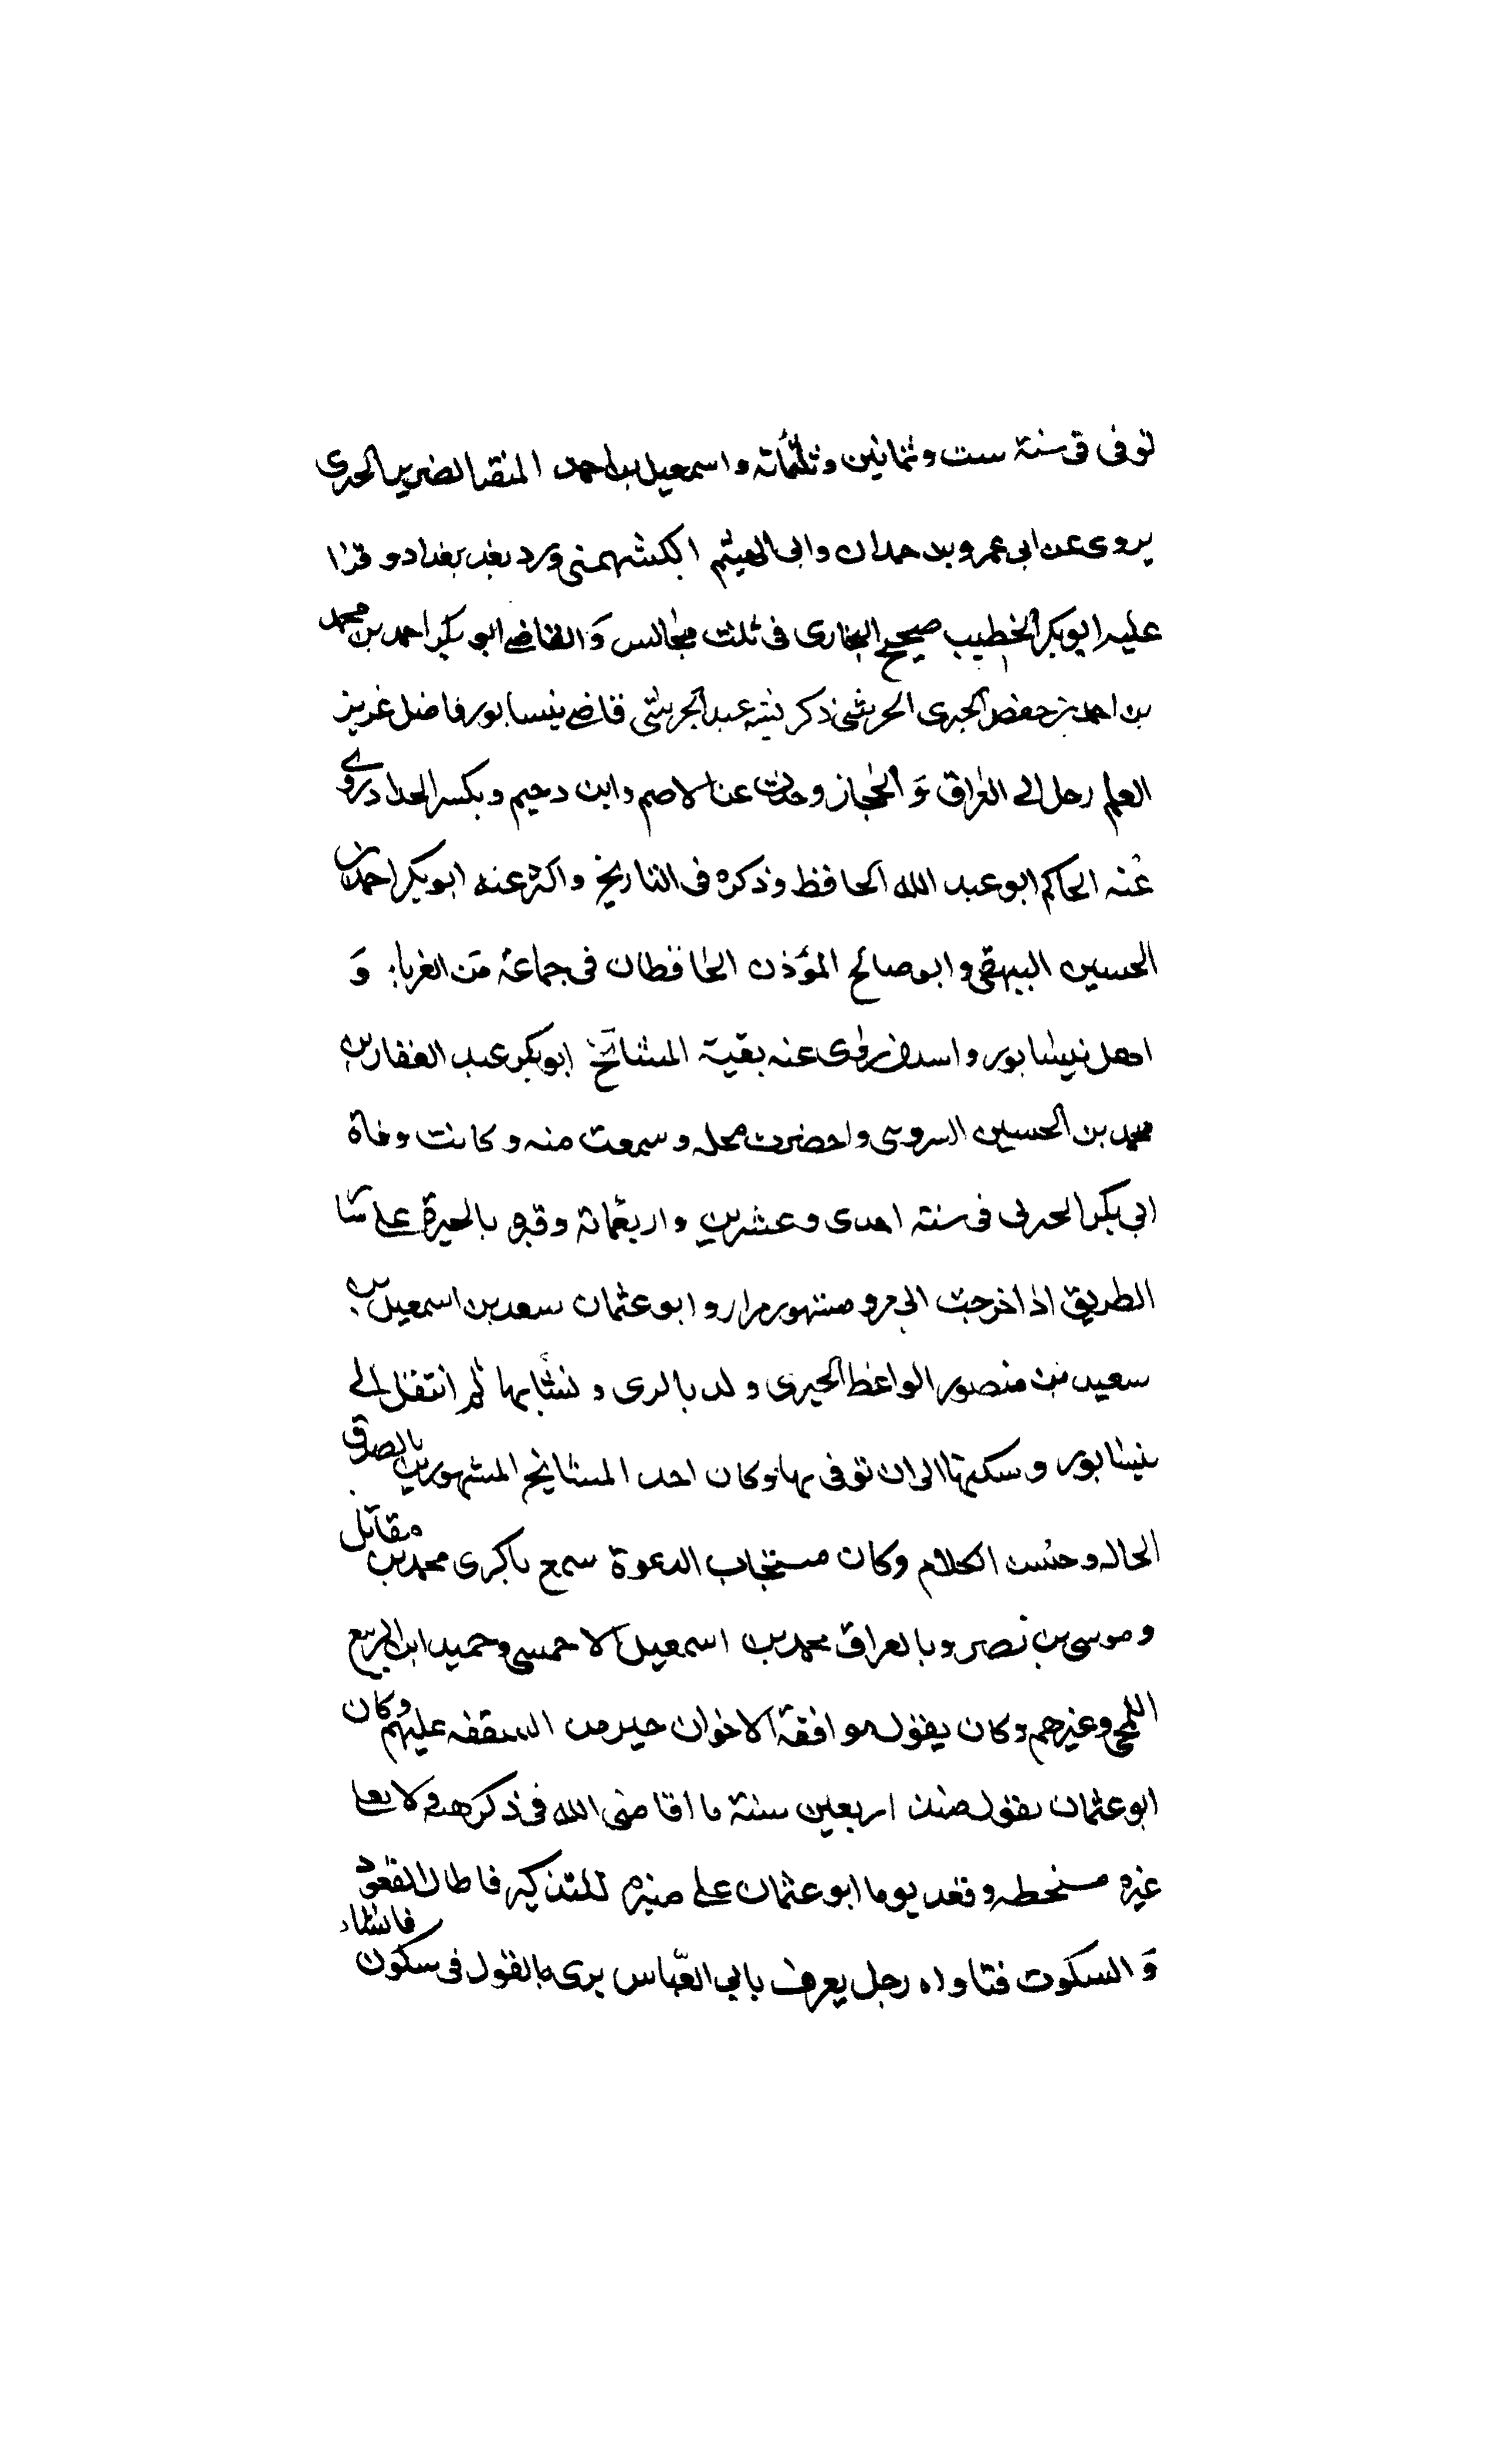 توفى فى سنة ست وثمانين وثلثمائة واسمعيل بن احمد المفسر الضرير الحيرى
يروى عن ابى عمرو بن حمدان وابى الهيثم الكشهمنى ورد بغد بغداد وقرا
عليه ابوبكر الخطيب صحيح البخارى فى ثلث مجالس وَالقاضى ابو بكر احمد بن محمد
بن احمد بن حفص الحيرى الحرشى ذكر نسبه عبد الحرشى قاضى نيسابور فاضل غزيز
العلم رحل الى العراق وَالحجاز وحدث عن الاصم وابن دحيم وبكسر الحداد روى
عنه الحاكم ابو عبد الله الحافظ وذكره فى التاريخ واكثر عنه ابوبكر احمد بن
الحسين البيهقى وابو صالح المؤذن الحافظان فى جماعة من الغربا وَ
اهل نيسابور واسد روى عنه بقية المشائخ ابو بكر عبد الغفار بن
محمد بن الحسين السروى واحضرت محله وسمعت منه وكانت وفاة
ابى بكر الحربى فى سنة احدى وعشرين واربعمائة وقبره بالحيرة على
الطريق اذا خرجت الى مرو مشهور مزار وابو عثمان سعد بن اسمعيل بن
سعيد بن منصور الواعظ الحيرى ولد بالرى ونشأ بها ثم انتقل الى
نيسابور وسكنها الى ان توفى بها وكان احد المشايخ المشهورين بالصدق
الحاله وحسن الكلام وكان مستجاب الدعوة سمع بالرى محمد بن مقاتل
وموسى بن نصر وبالعراق محمد بن اسمعيل الاحمسى وحميد ابن الربيع
اللخمى وغيرهم وكان يقول موافقة الاخوان خير من الشفقه عليهم وكان
ابو عثمان يقول منذ اربعين سنة ما اقامنى الله فى ذكرهته ولا
غيره مسخطه وقعد يوما ابو عثمان على منبره للتذكير فاطال القعود
وَالسكوت فناداه رجل يعرف بابى العباس برى بالقول فى سكون فانشاء